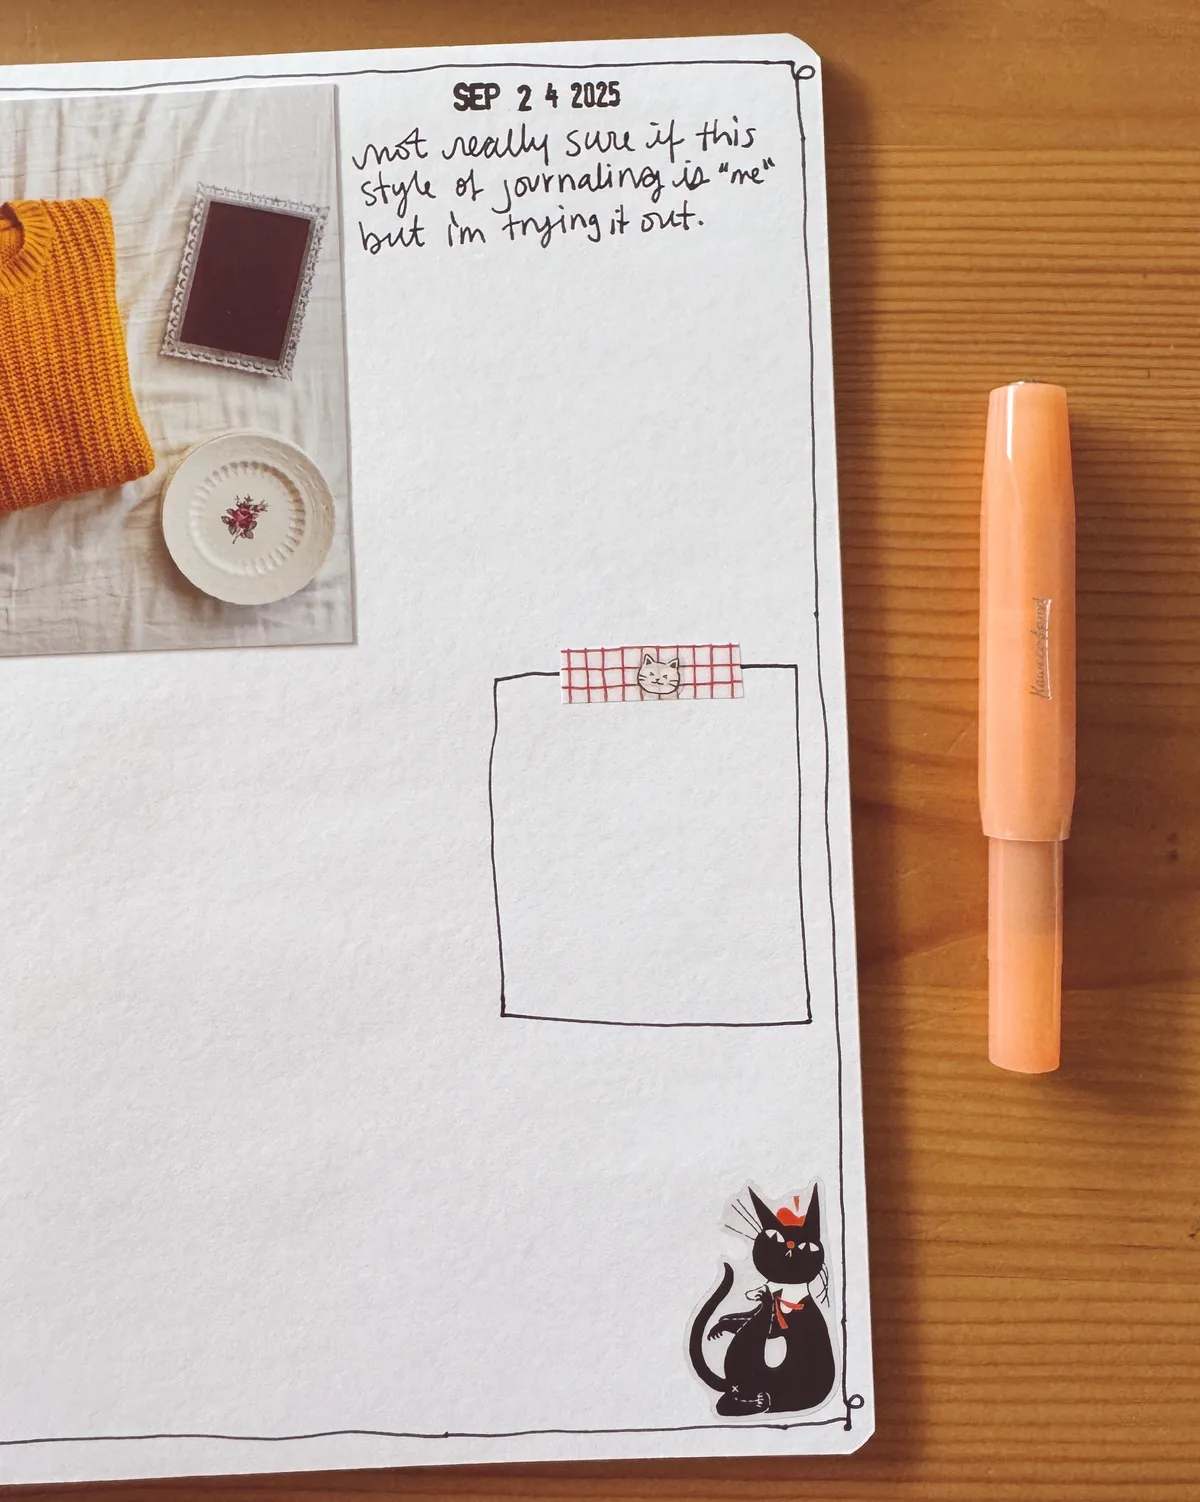 SEP 24 2025
not really sure if this
style of journaling is "me"
but i'm trying it out.
Kaweco Sport